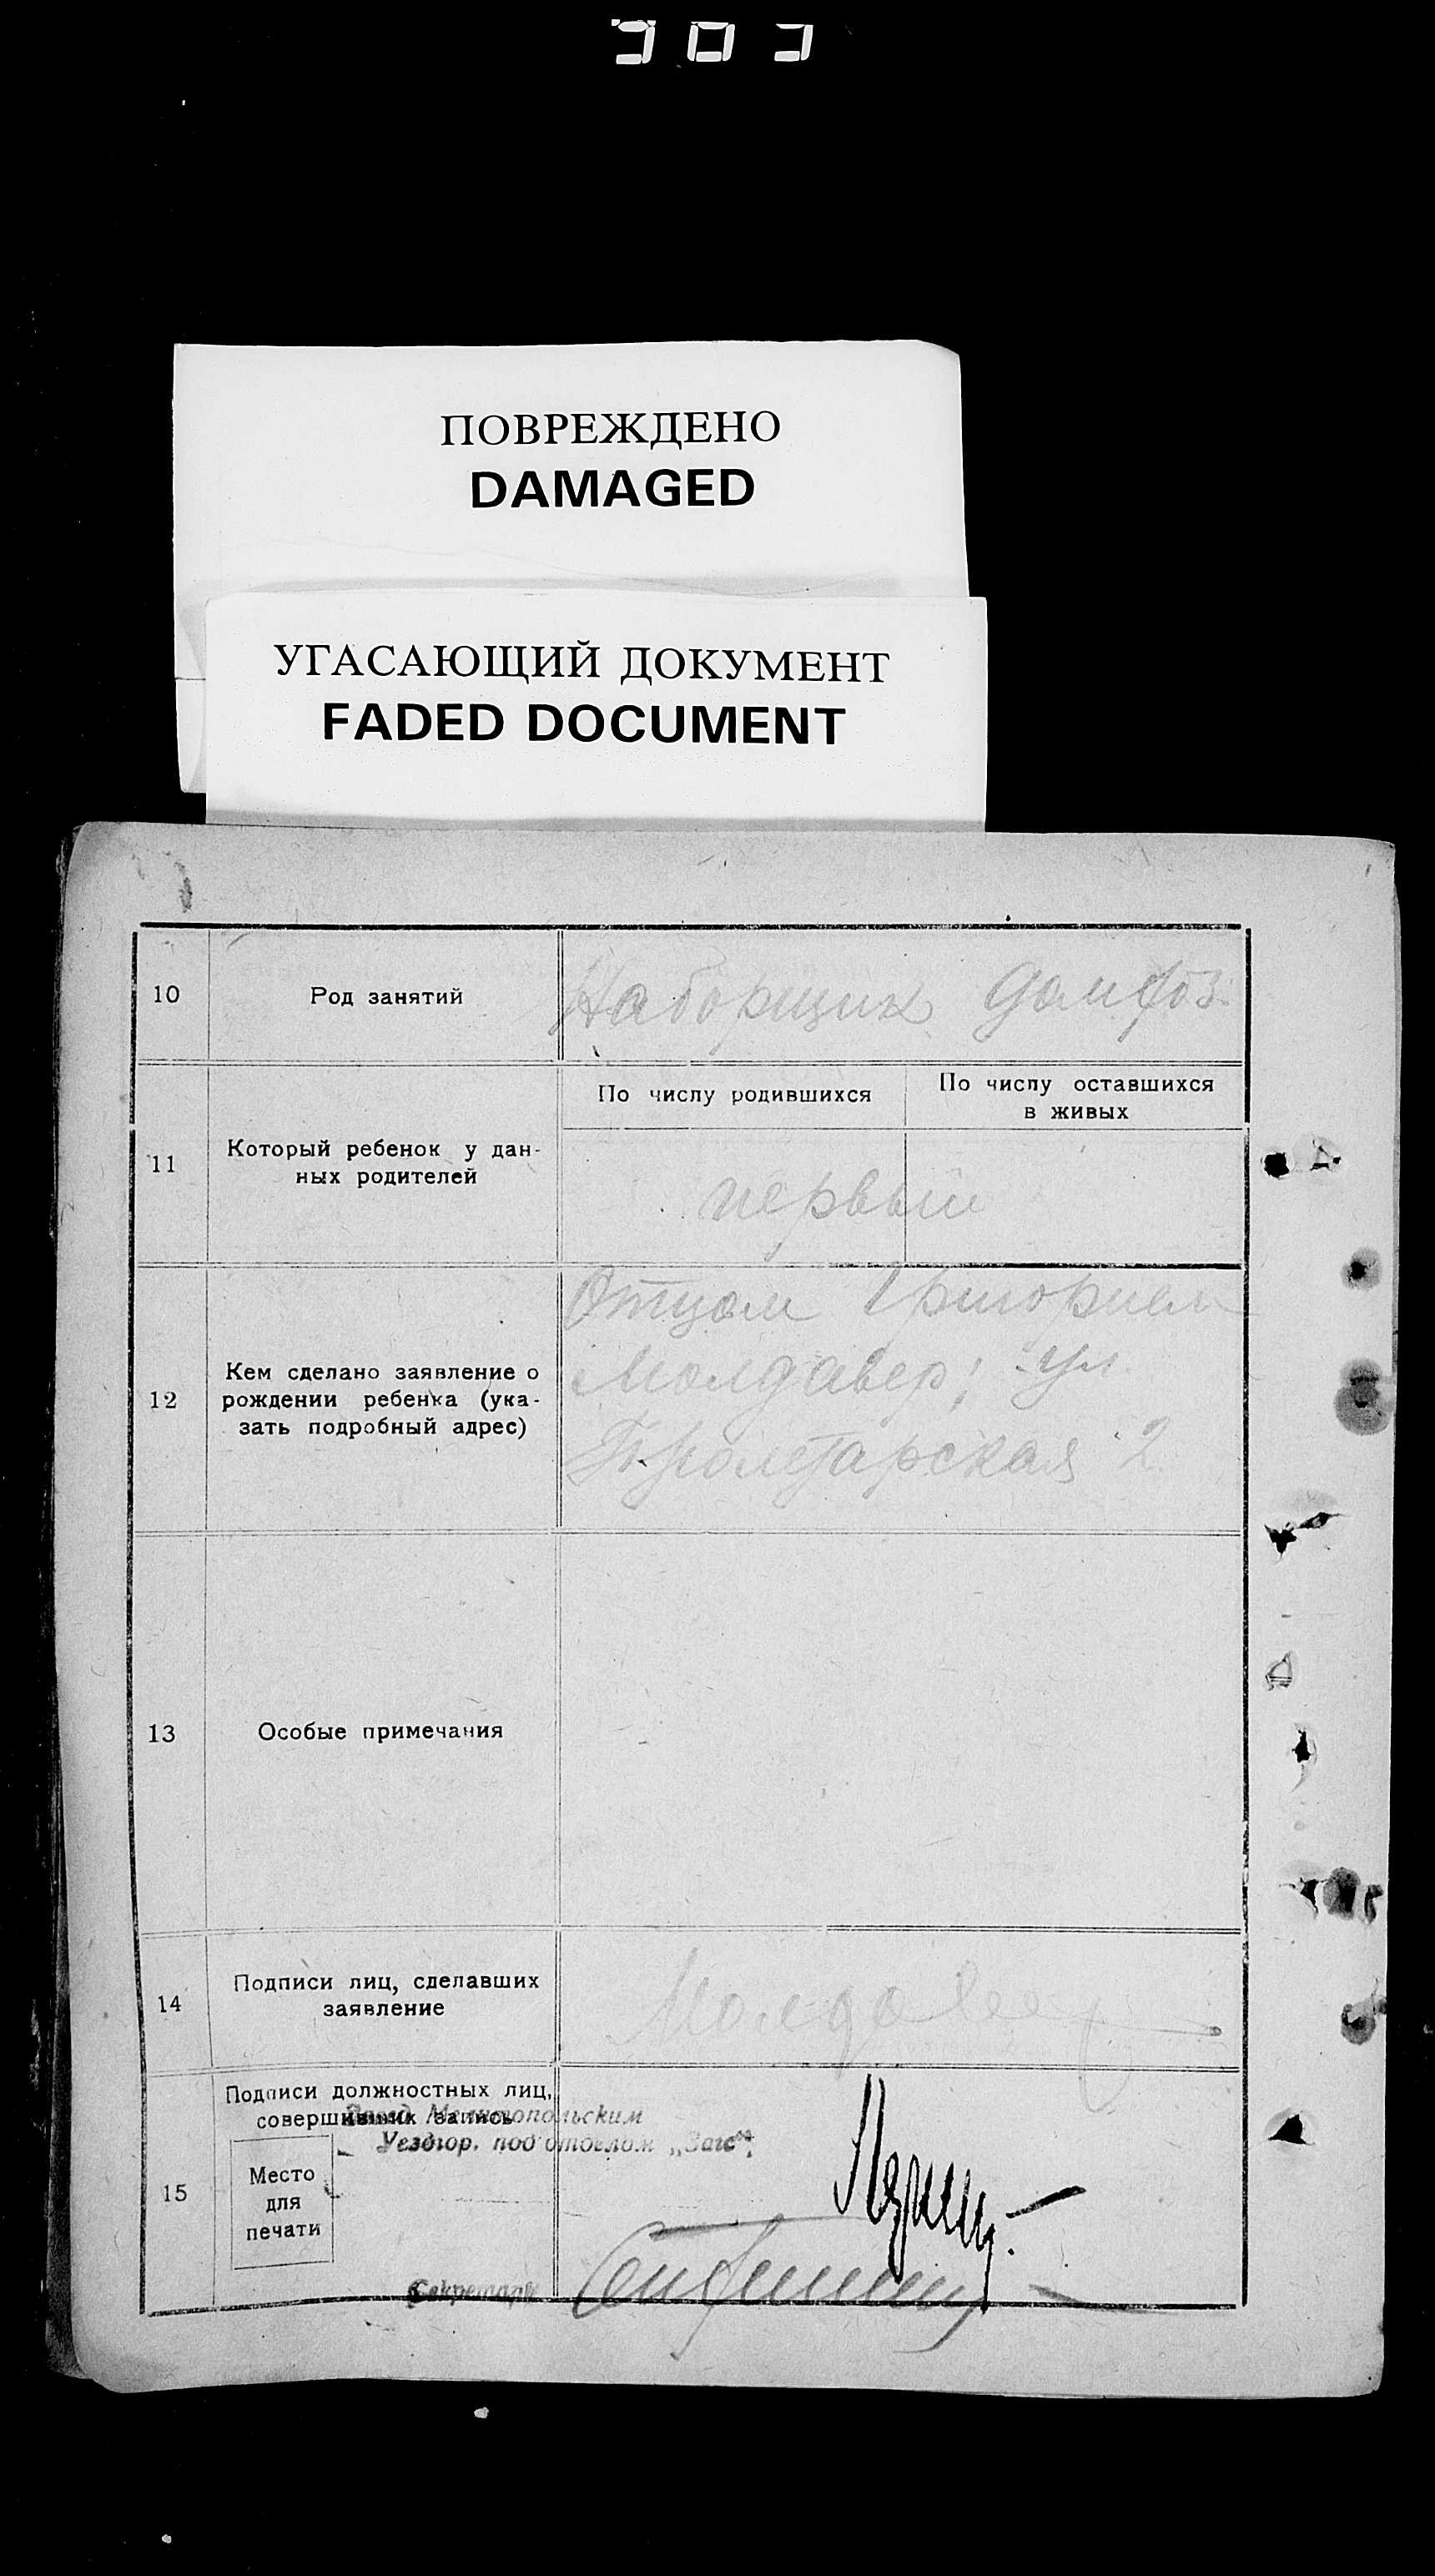 ПОВРЕЖДЕНО
DAMAGED
УГАСАЮЩИЙ ДОКУМЕНТ
FADED DOCUMENT
10
Род занятий
Наборщик Домхоз.
11
Который ребенок у дан-
ных родителей
По числу родившихся
По числу оставшихся
в живых
первый
12
Кем сделано заявление о
рождении ребенка (ука-
зать подробный адрес)
Отцом Григорием
Молдавер; ул
Пролетарская 2
13
Особые примечания
14
Подписи лиц, сделавших
заявление
Молдавер
15
Подписи должностных лиц,
совершивших запись
Завед. Мелитопольским
Уездгор. подотделом „Загс“:
Место
для
печати
Секретарь